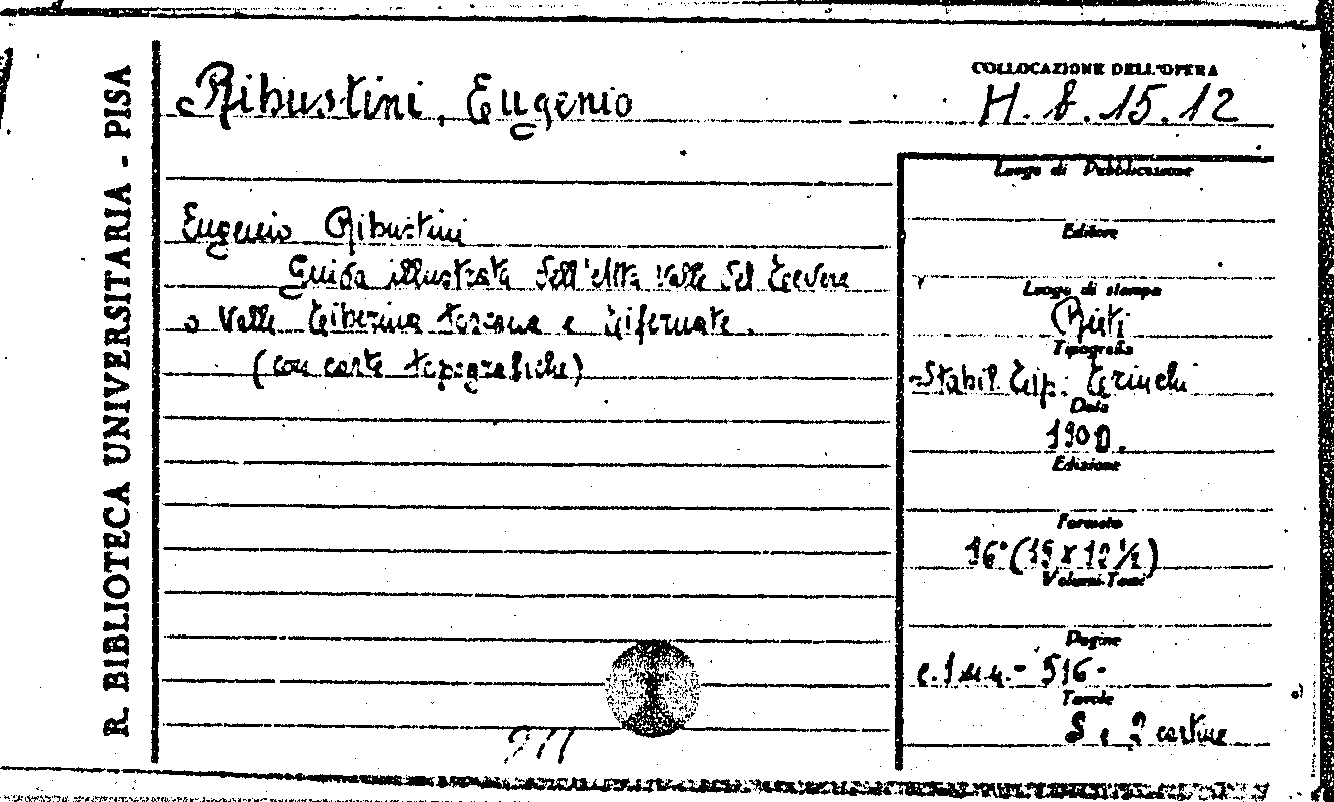 R. BIBLIOTECA UNIVERSITARIA - PISA
Ribustini, Eugenio
COLLOCAZIONE DELL'OPERA
H. 8. 15. 12
Eugenio Ribustini
Guida illustrata dell'alta valle del Tevere
o Valle Tiberina toscana e tifernate.
(con carte topografiche)
Luogo di Pubblicazione
Editore
Luogo di stampa
Rieti
Tipografia
Stabil. Tip. Trinchi
Data
1900.
Edizione
Formato
16° (19 x 12 ½)
Volumi-Tomi
Pagine
c. 1 n.n. - 516 -
Tavole
e 2 cartine